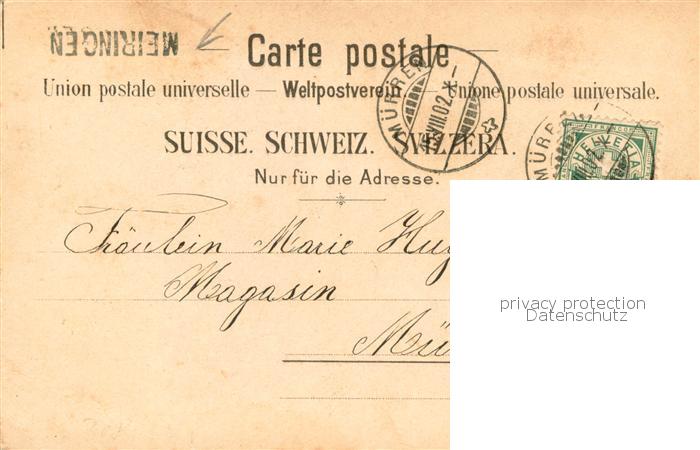 MEIRINGEN
Carte postale
Union postale universelle — Weltpostverein — Unione postale universale.
SUISSE. SCHWEIZ. SVIZZERA.
Nur für die Adresse.
MÜRREN
VIII.02
MÜRREN
HELVETIA
Fräulein Marie
Magasin
privacy protection
Datenschutz